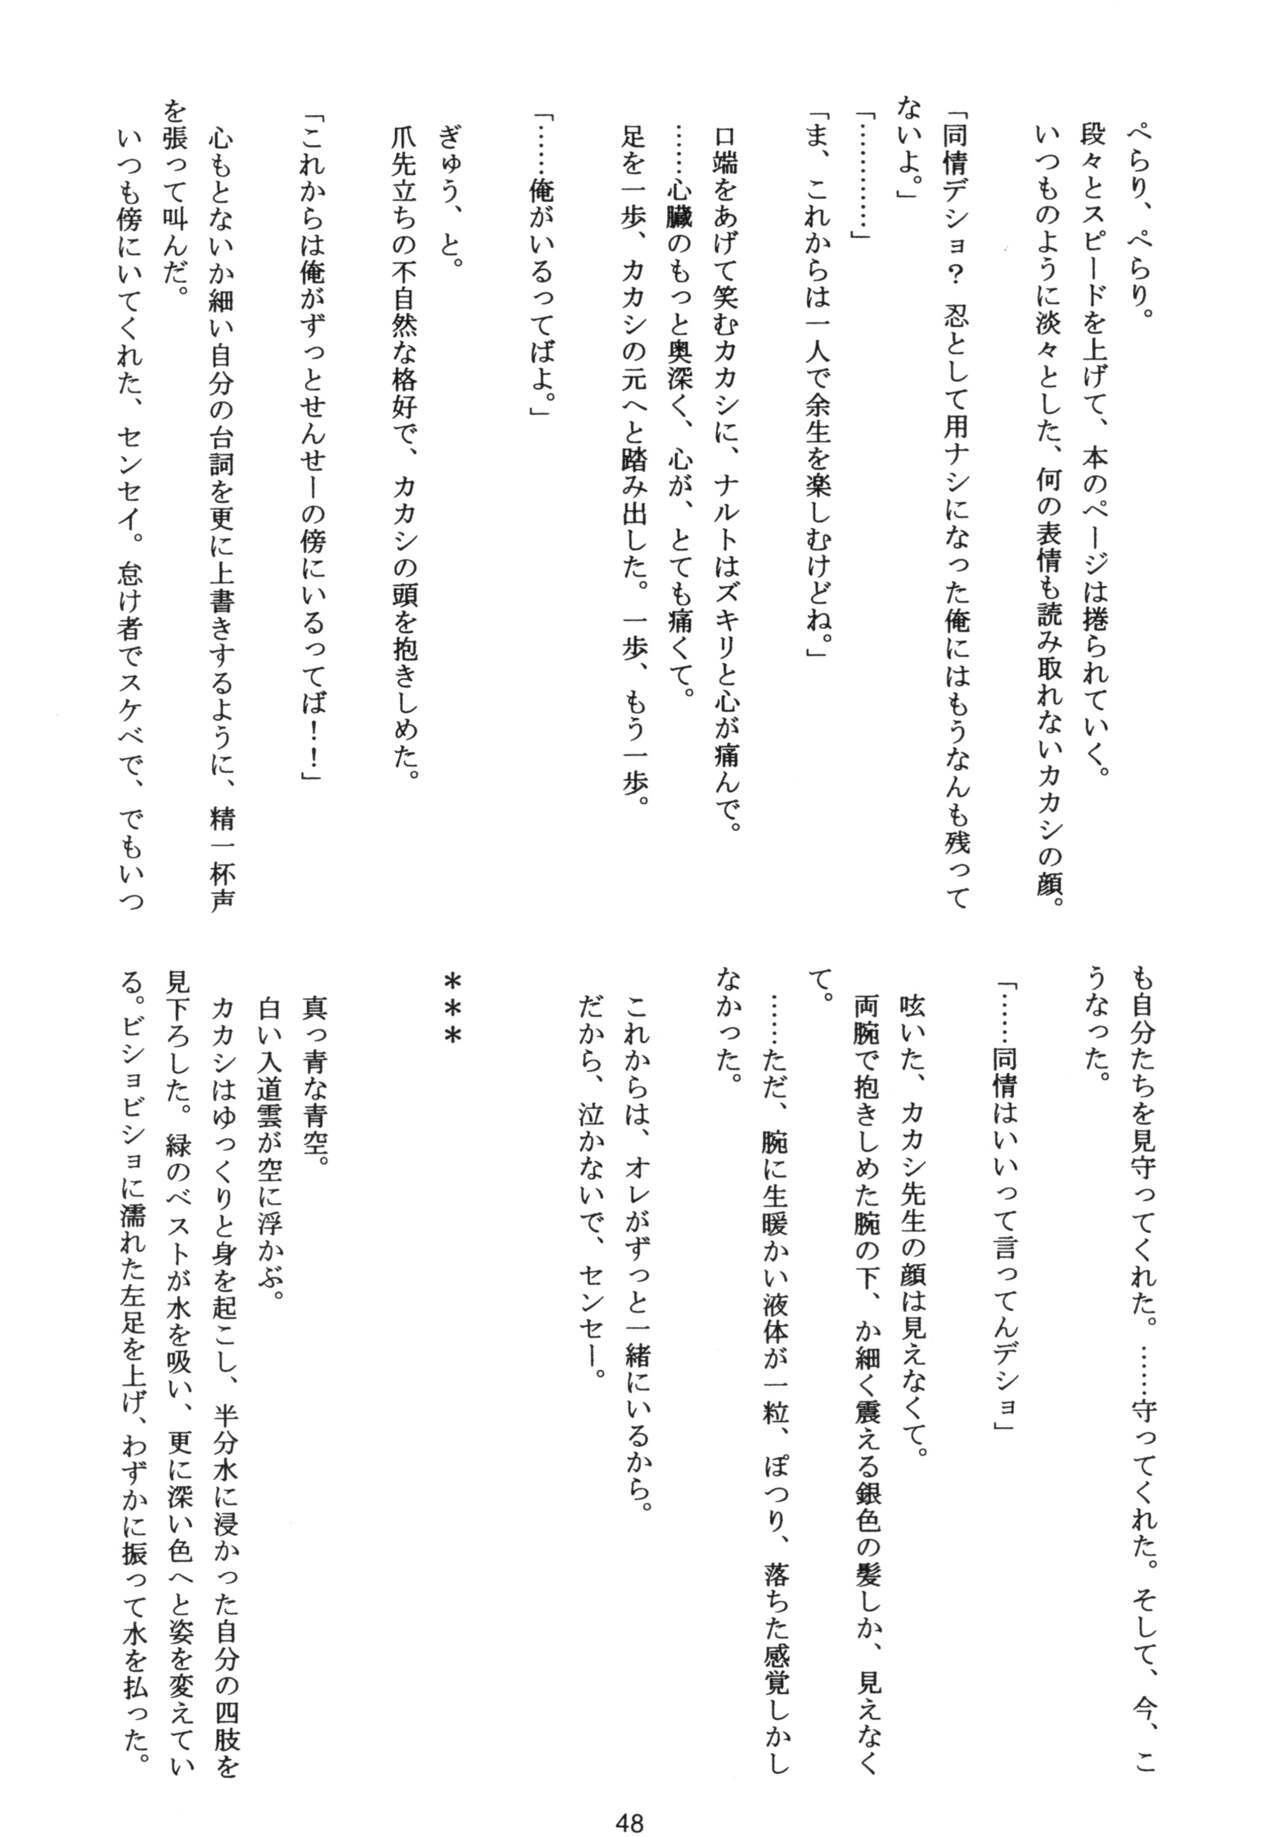 ぺらり、ぺらり。
段々とスピードを上げて、本のページは捲られていく。
いつものように淡々とした、何の表情も読み取れないカカシの顔。
「同情デショ？ 忍として用ナシになった俺にはもうなんも残って
ないよ。」
「…………」
「ま、これからは一人で余生を楽しむけどね。」
口端をあげて笑むカカシに、ナルトはズキリと心が痛んで。
……心臓のもっと奥深く、心が、とても痛くて。
足を一歩、カカシの元へと踏み出した。一歩、もう一歩。
「……俺がいるってばよ。」
ぎゅう、と。
爪先立ちの不自然な格好で、カカシの頭を抱きしめた。
「これからは俺がずっとせんせーの傍にいるってば！！」
心もとないか細い自分の台詞を更に上書きするように、精一杯声
を張って叫んだ。
いつも傍にいてくれた、センセイ。怠け者でスケベで、でもいつ
も自分たちを見守ってくれた。……守ってくれた。そして、今、こ
うなった。
「……同情はいいって言ってんデショ」
呟いた、カカシ先生の顔は見えなくて。
両腕で抱きしめた腕の下、か細く震える銀色の髪しか、見えなく
て。
……ただ、腕に生暖かい液体が一粒、ぽつり、落ちた感覚しかし
なかった。
これからは、オレがずっと一緒にいるから。
だから、泣かないで、センセー。
＊＊＊
真っ青な青空。
白い入道雲が空に浮かぶ。
カカシはゆっくりと身を起こし、半分水に浸かった自分の四肢を
見下ろした。緑のベストが水を吸い、更に深い色へと姿を変えてい
る。ビショビショに濡れた左足を上げ、わずかに振って水を払った。
48